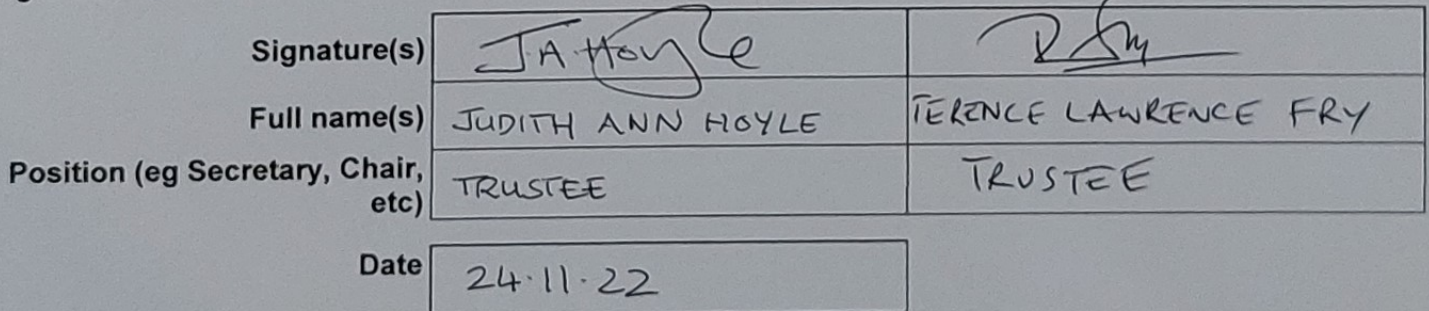 Signature(s) J A Hoyle
Full name(s) JUDITH ANN HOYLE TERENCE LAWRENCE FRY
Position (eg Secretary, Chair, etc) TRUSTEE TRUSTEE
Date 24.11.22